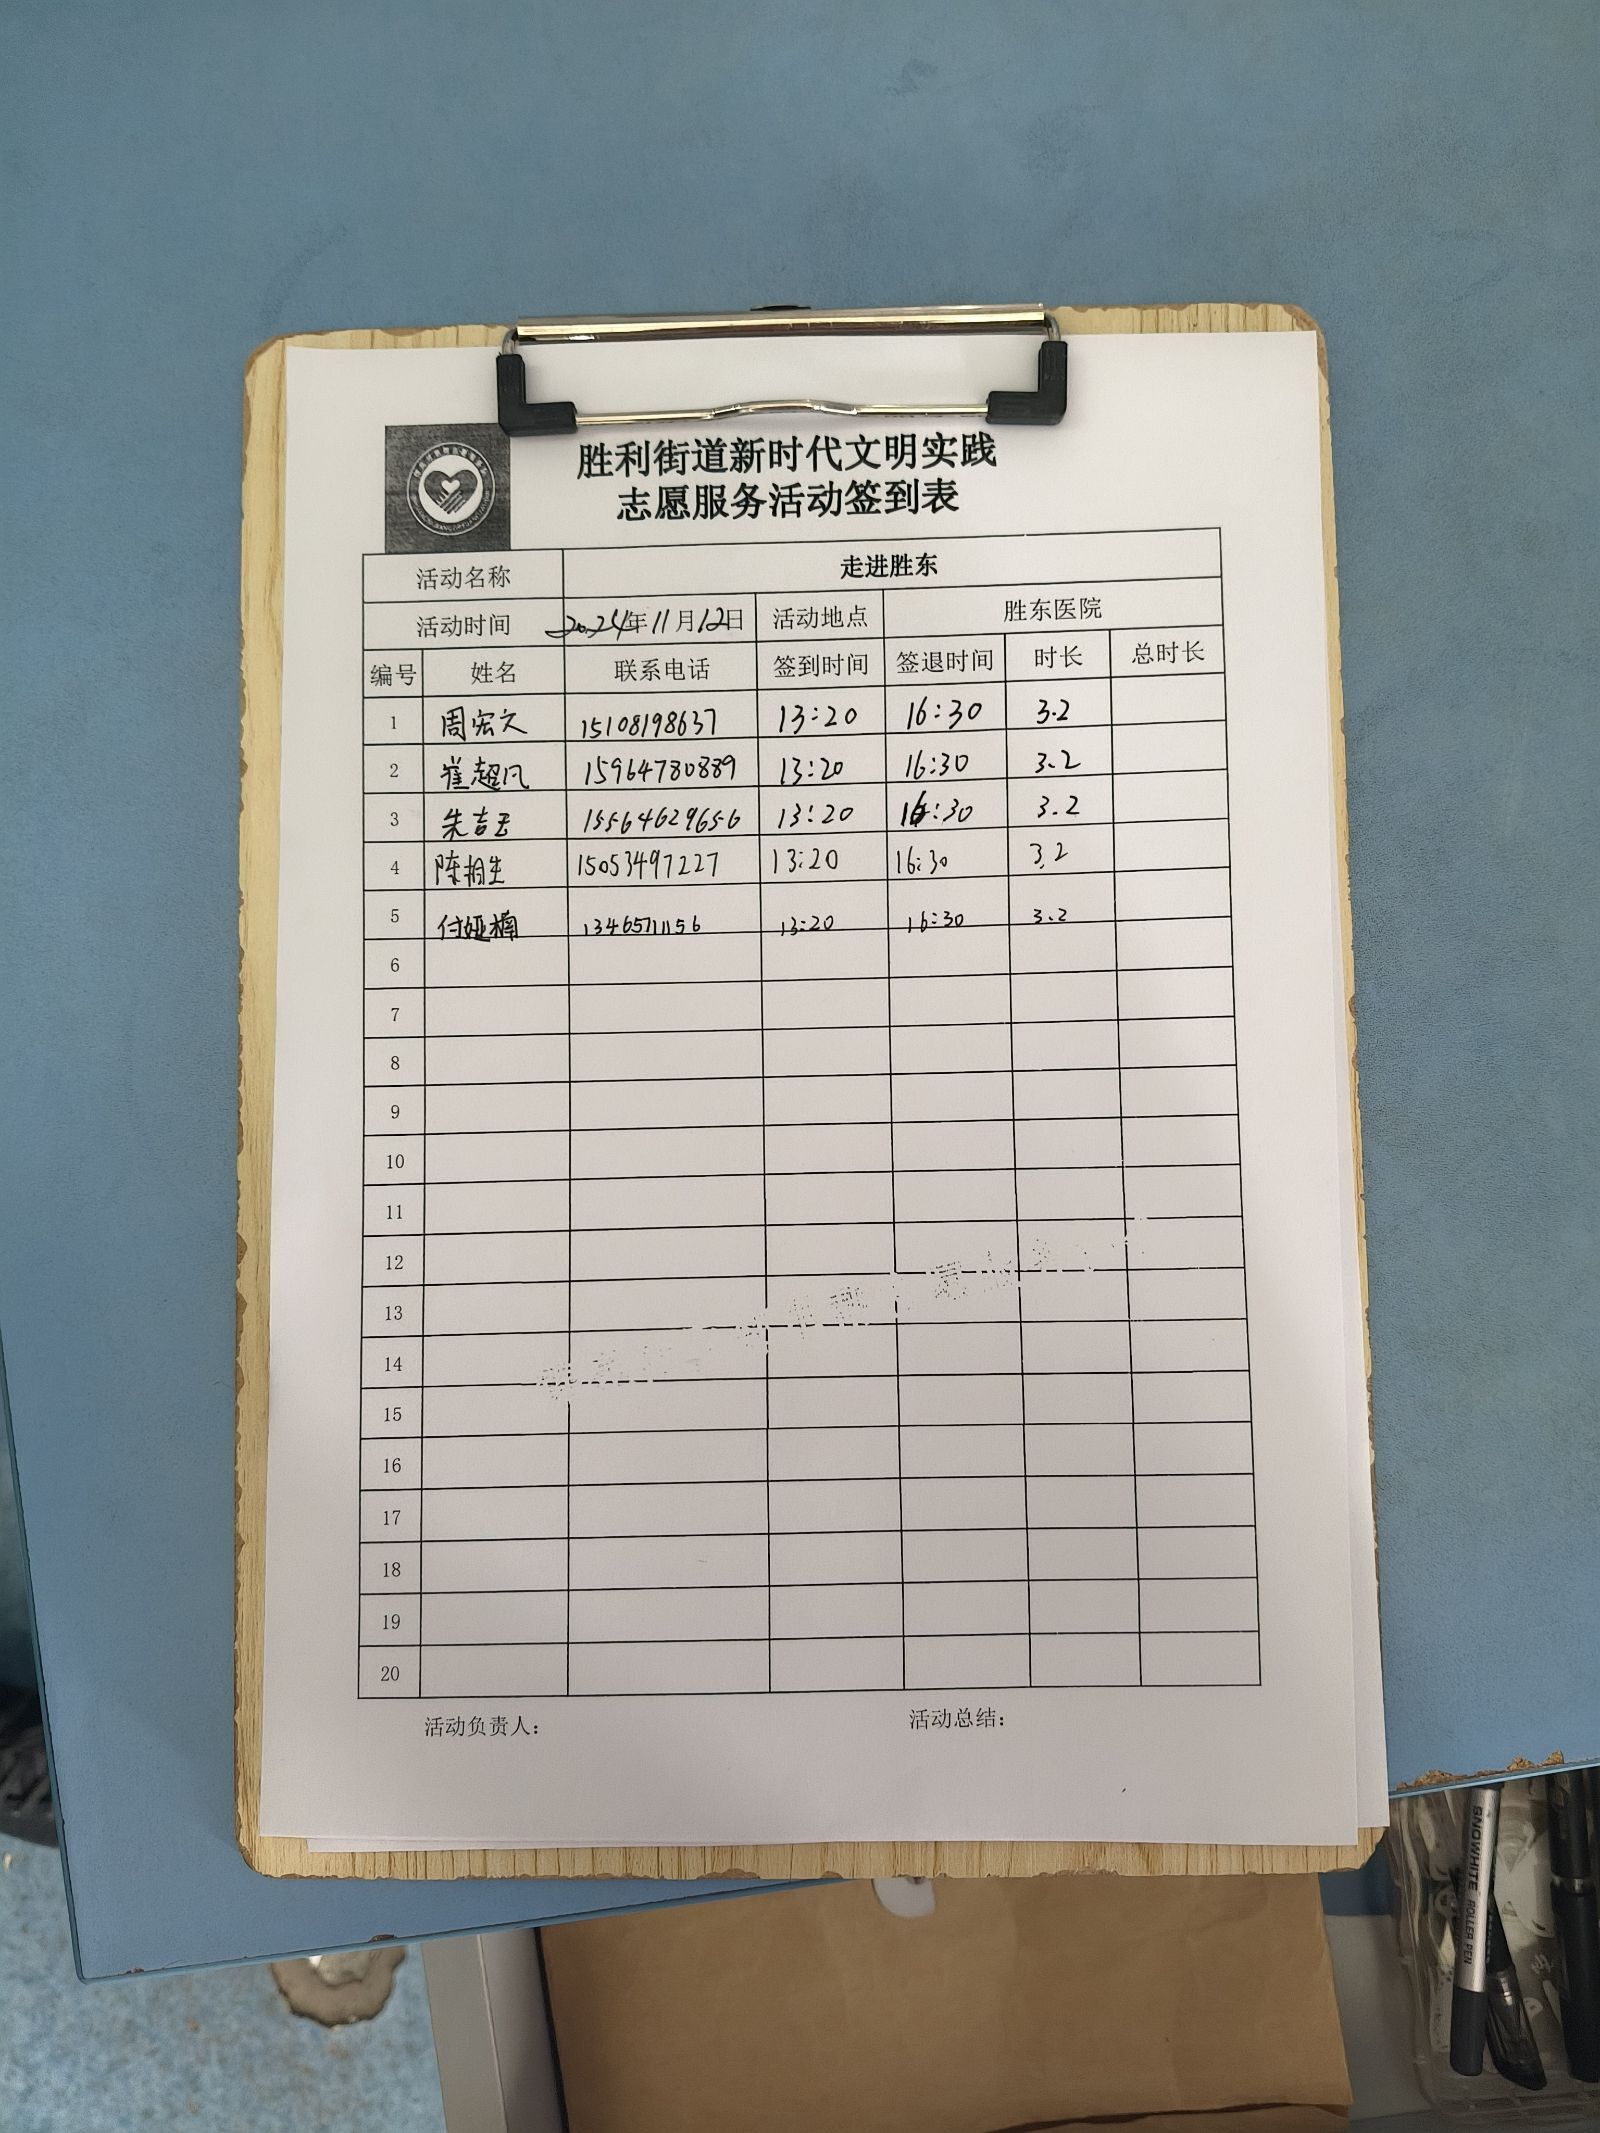 胜利街道新时代文明实践
志愿服务活动签到表
活动名称 走进胜东
活动时间 2024年11月12日 活动地点 胜东医院
编号 姓名 联系电话 签到时间 签退时间 时长 总时长
1 周宏文 15108198637 13:20 16:30 3.2
2 崔超凡 15964780889 13:20 16:30 3.2
3 朱吉玉 15564629656 13:20 16:30 3.2
4 陈相生 15053497227 13:20 16:30 3.2
5 付娅楠 13465711156 13:20 16:30 3.2
6
7
8
9
10
11
12
13
14
15
16
17
18
19
20
活动负责人: 活动总结:
SNOWHITE ROLLER PEN